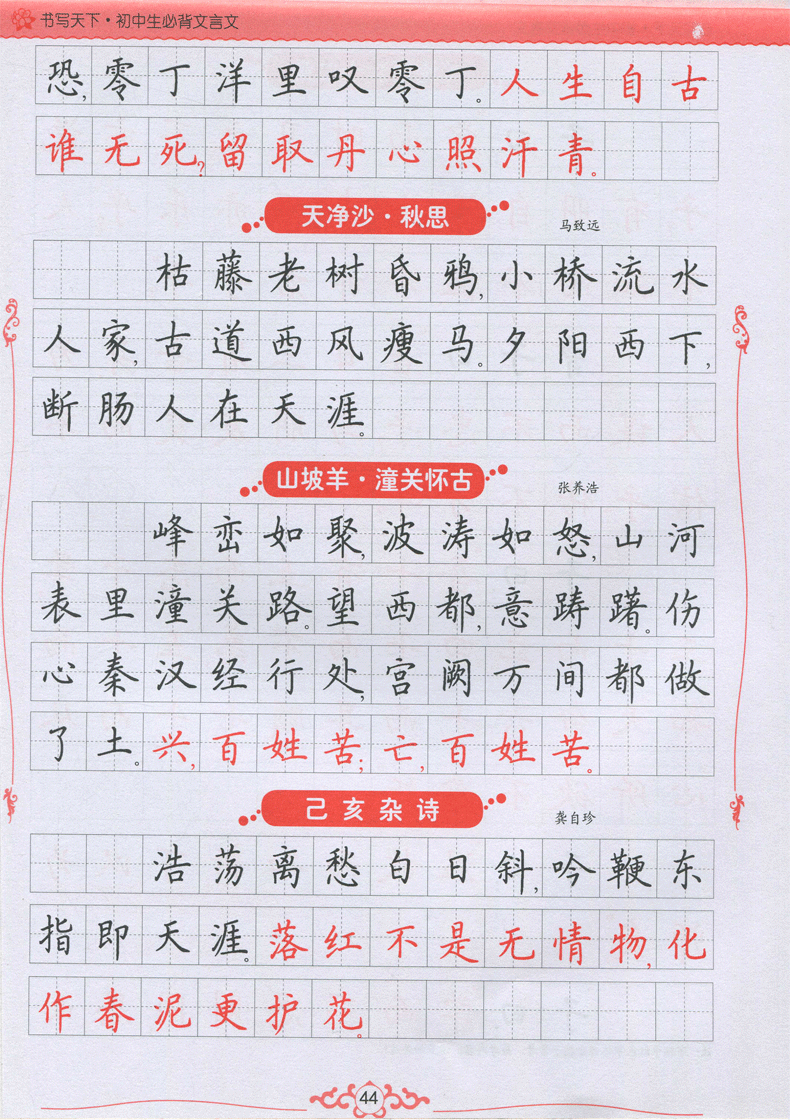 书写天下·初中生必背文言文
恐,零丁洋里叹零丁。人生自古
谁无死?留取丹心照汗青。
天净沙·秋思
马致远
枯藤老树昏鸦,小桥流水
人家,古道西风瘦马。夕阳西下,
断肠人在天涯。
山坡羊·潼关怀古
张养浩
峰峦如聚,波涛如怒,山河
表里潼关路。望西都,意踌躇。伤
心秦汉经行处,宫阙万间都做
了土。兴,百姓苦;亡,百姓苦。
己亥杂诗
龚自珍
浩荡离愁白日斜,吟鞭东
指即天涯。落红不是无情物,化
作春泥更护花。
44